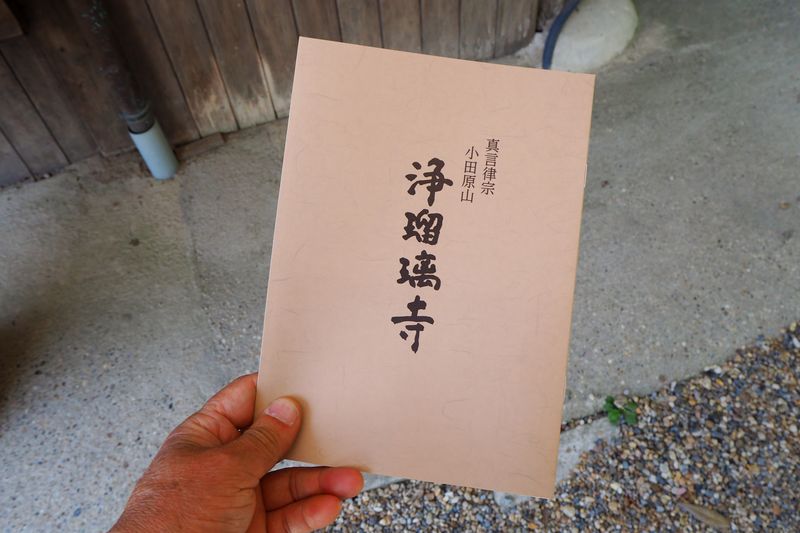 真言律宗
小田原山
浄瑠璃寺